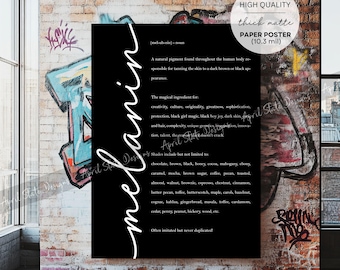 HIGH QUALITY
thick matte
PAPER POSTER
(10.3 mil)
melanin
• noun
A natural pigment found throughout the human body re-
sponsible for tanning the skin to a dark brown or black ap-
pearance.
The magical ingredient for:
creativity, culture, originality, greatness, sophistication,
protection, black girl magic, black boy joy, dark skin,
Shades include but not limited to:
chocolate, brown, black, honey, cocoa, mahogany, ebony,
caramel, mocha, brown sugar, coffee, pecan, toasted,
almond, walnut, brownie, espresso, chestnut, cinnamon,
butter pecan, toffee, butterscotch, maple, carob, hazelnut,
cedar, penny, peanut, hickory, wood, etc.
Often imitated but never duplicated!
April State Designs